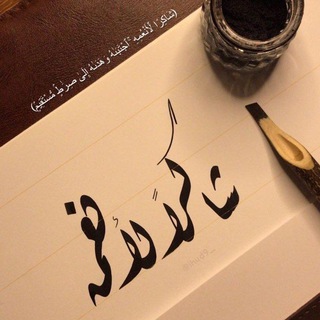 (شَاكِرًا لِّأَنْعُمِهِ ۚ اجْتَبَاهُ وَهَدَاهُ إِلَىٰ صِرَاطٍ مُّسْتَقِيمٍ)
شاكراً لأنعمه